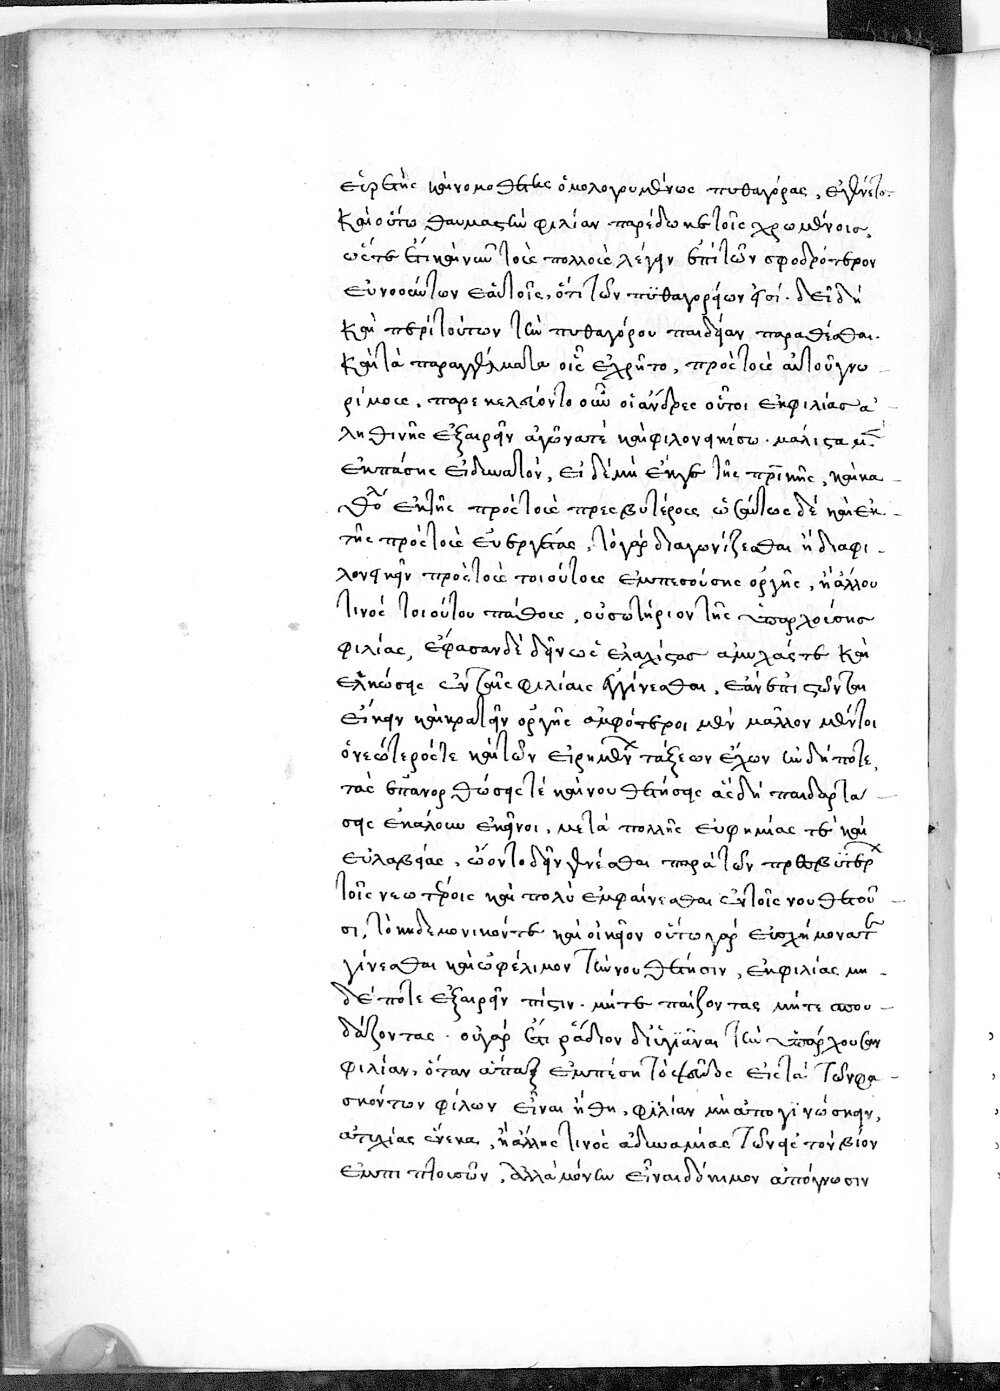 εὑρετὴς καὶ νομοθέτης ὁμολογουμένως πυθαγόρας, ἐγένετο.
καὶ οὕτω θαυμαστὴν φιλίαν παρέδωκε τοῖς χρωμένοις,
ὥστε ἔτι καὶ νῦν τοὺς πολλοὺς λέγειν ἐπὶ τῶν σφοδρότερον
εὐνοούντων ἑαυτοῖς, ὅτι τῶν πυθαγορείων εἰσί. δεῖ δὴ
καὶ περὶ τούτων τὴν πυθαγόρου παιδείαν παραθέσθαι.
καὶ τὰ παραγγέλματα οἷς ἐχρῆτο, πρὸς τοὺς αὑτοῦ γνω
ρίμους. παρεκελεύοντο οὖν οἱ ἄνδρες οὗτοι ἐκ φιλίας ἀ
ληθινῆς ἐξαιρεῖν ἀγῶνά τε καὶ φιλονεικίαν. μάλιστα μὲν
ἐκ πάσης εἰ δυνατόν, εἰ δὲ μὴ ἔκ γε τῆς πρικῆς, καὶ κα
θόλου ἐκ τῆς πρὸς τοὺς πρεσβυτέρους ὡσαύτως δὲ καὶ ἐκ
τῆς πρὸς τοὺς εὐεργέτας, τὸ γὰρ διαγωνίζεσθαι ἢ διαφι
λονεικεῖν πρὸς τοὺς τοιούτους ἐμπεσούσης ὀργῆς, ἢ ἄλλου
τινὸς τοιούτου πάθους, οὐ σωτήριον τῆς ὑπαρχούσης
φιλίας, ἔφασαν δὲ δεῖν ὡς ἐλαχίστας ἀμυχάς τε καὶ
ἑλκώσεις ἐν ταῖς φιλίαις ἐγγίνεσθαι, ἐὰν ἐπίστωνται
εἴκειν καὶ κρατεῖν ὀργῆς ἀμφότεροι μὲν μᾶλλον μέντοι
ὁ νεώτερός τε καὶ τῶν εἰρημένων τάξεων ἔχων ἣν δήποτε,
τὰς ἐπανορθώσεις τε καὶ νουθετήσεις ἃς δὴ παιδαρτά
σεις ἐκάλουν ἐκεῖνοι, μετὰ πολλῆς εὐφημίας τε καὶ
εὐλαβείας, ᾤοντο δεῖν γίνεσθαι παρὰ τῶν πρεσβυτέρων
τοῖς νεωτέροις καὶ πολὺ ἐμφαίνεσθαι ἐν τοῖς νουθετοῦ
σι, τὸ κηδεμονικόν τε καὶ οἰκεῖον οὕτω γὰρ εὐσχήμονά τε
γίνεσθαι καὶ ὠφέλιμον τὴν νουθέτησιν, ἐκ φιλίας μη
δέποτε ἐξαιρεῖν πίστιν. μήτε παίζοντας μήτε σπου
δάζοντας. οὐ γὰρ ἔτι ῥᾴδιον διυγιᾶναι τὴν ὑπάρχουσαν
φιλίαν, ὅταν ἅπαξ ἐμπέσῃ τὸ ψεῦδος εἰς τὰ τῶν φα
σκόντων φίλων εἶναι ἤθη, φιλίαν μὴ ἀπογινώσκειν,
ἀτυχίας ἕνεκα, ἢ ἄλλης τινὸς ἀδυναμίας τῶν εἰς τὸν βίον
ἐμπιπτουσῶν, ἀλλὰ μόνην εἶναι δόκιμον ἀπόγνωσιν